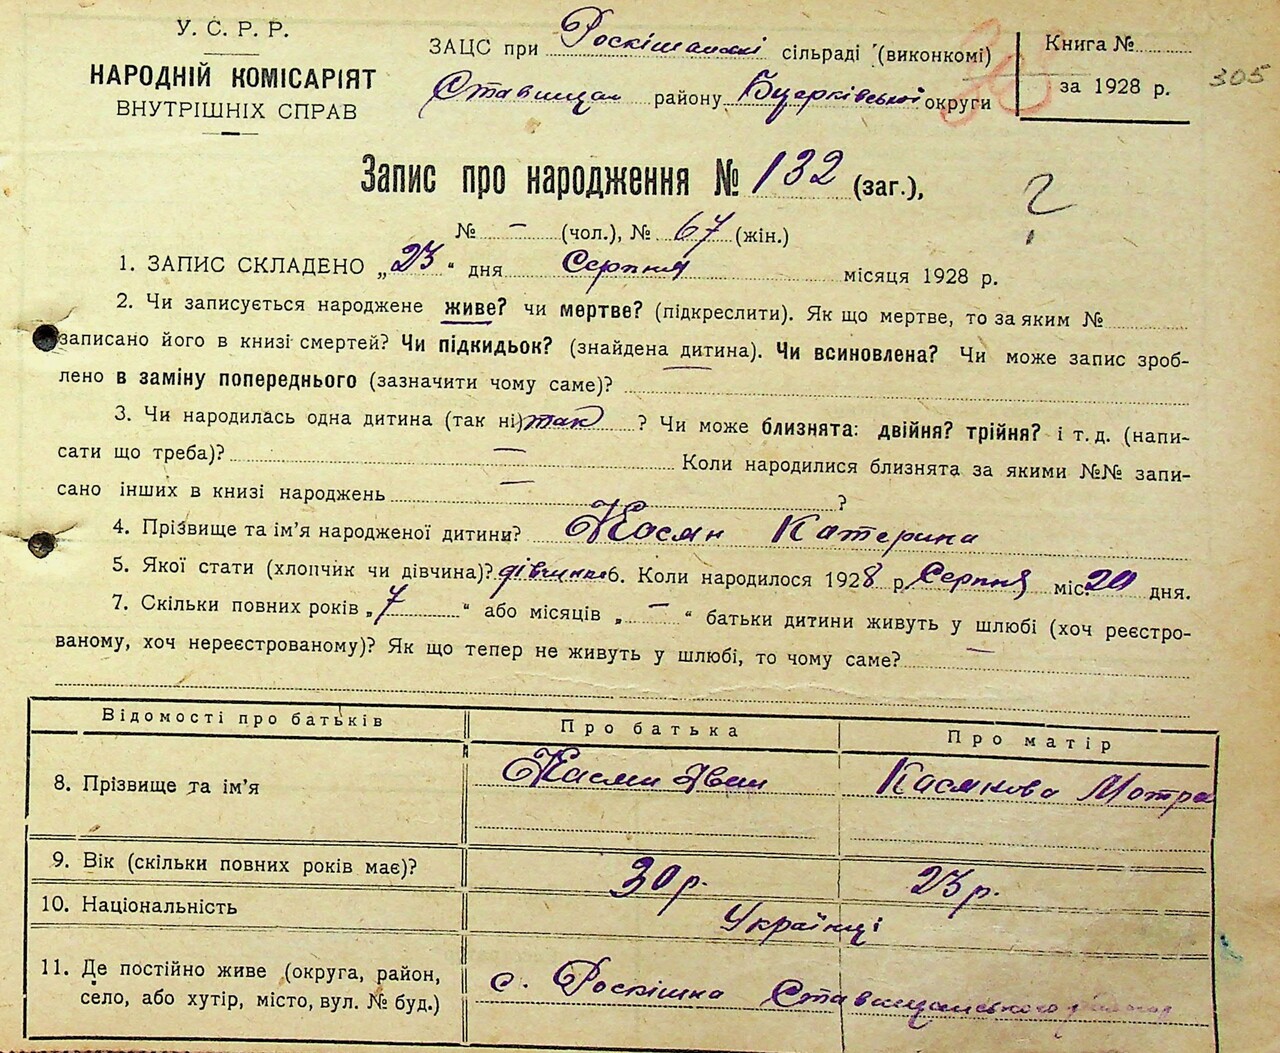 У. С. Р. Р.
НАРОДНІЙ КОМІСАРІЯТ
ВНУТРІШНІХ СПРАВ
ЗАЦС при Роскішанскі сільраді (виконкомі)
Ставищан району Бцерківської округи
Книга №
за 1928 р.
305
Запис про народження № 132 (заг.),
№ – (чол.), № 67 (жін.)
?
1. ЗАПИС СКЛАДЕНО „23“ дня Серпня місяця 1928 р.
2. Чи записується народжене живе? чи мертве? (підкреслити). Як що мертве, то за яким №
записано його в книзі смертей? Чи підкидьок? (знайдена дитина). Чи всиновлена? Чи може запис зроб-
лено в заміну попереднього (зазначити чому саме)? —
3. Чи народилась одна дитина (так ні) так ? Чи може близнята: двійня? трійня? і т. д. (напи-
сати що треба)? — Коли народилися близнята за якими №№ запи-
сано інших в книзі народжень — ?
4. Прізвище та ім’я народженої дитини? Касян Катерина
5. Якої стати (хлопчик чи дівчина)? дівчинка 6. Коли народилося 1928 р. Серпня міс. 20 дня.
7. Скільки повних років „7“ або місяців „–“ батьки дитини живуть у шлюбі (хоч реєстро-
ваному, хоч нереєстрованому)? Як що тепер не живуть у шлюбі, то чому саме? —
Відомості про батьків Про батька Про матір
8. Прізвище та ім’я Касян Іван Касянова Мотра
9. Вік (скільки повних років має)? 30 р. 23 р.
10. Національність Українці
11. Де постійно живе (округа, район,
село, або хутір, місто, вул. № буд.) с. Роскішна Ставищанського